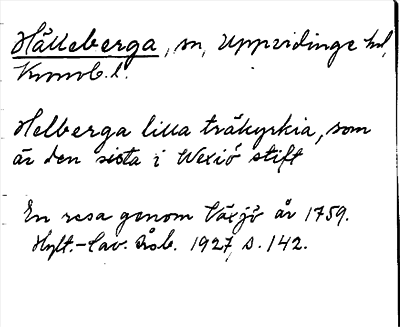 Hälleberga, sn, Uppvidinge hd,
Kronob. l.
Helberga lilla träkyrkia, som
är den sista i Wexiö stift
En resa genom Växjö år 1759.
Hylt.-Cav. årsb. 1927, s. 142.